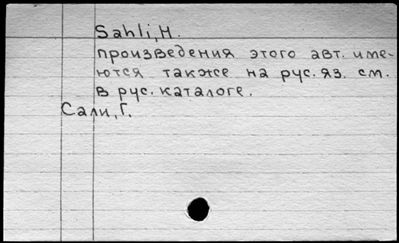 Sahli, H.
произведения этого авт. име-
ются также на рус. яз. см.
в рус. каталоге.
Сали, Г.